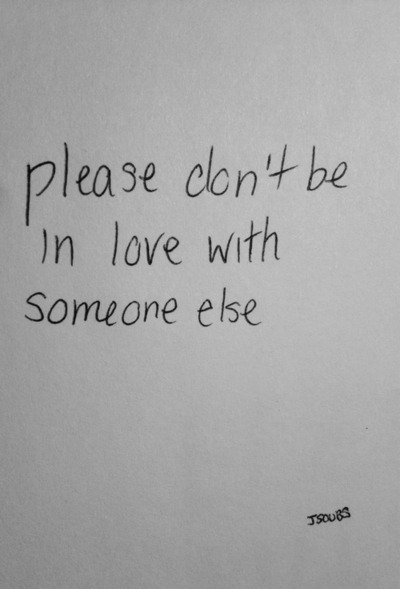 please don't be
in love with
someone else
JSOUBS